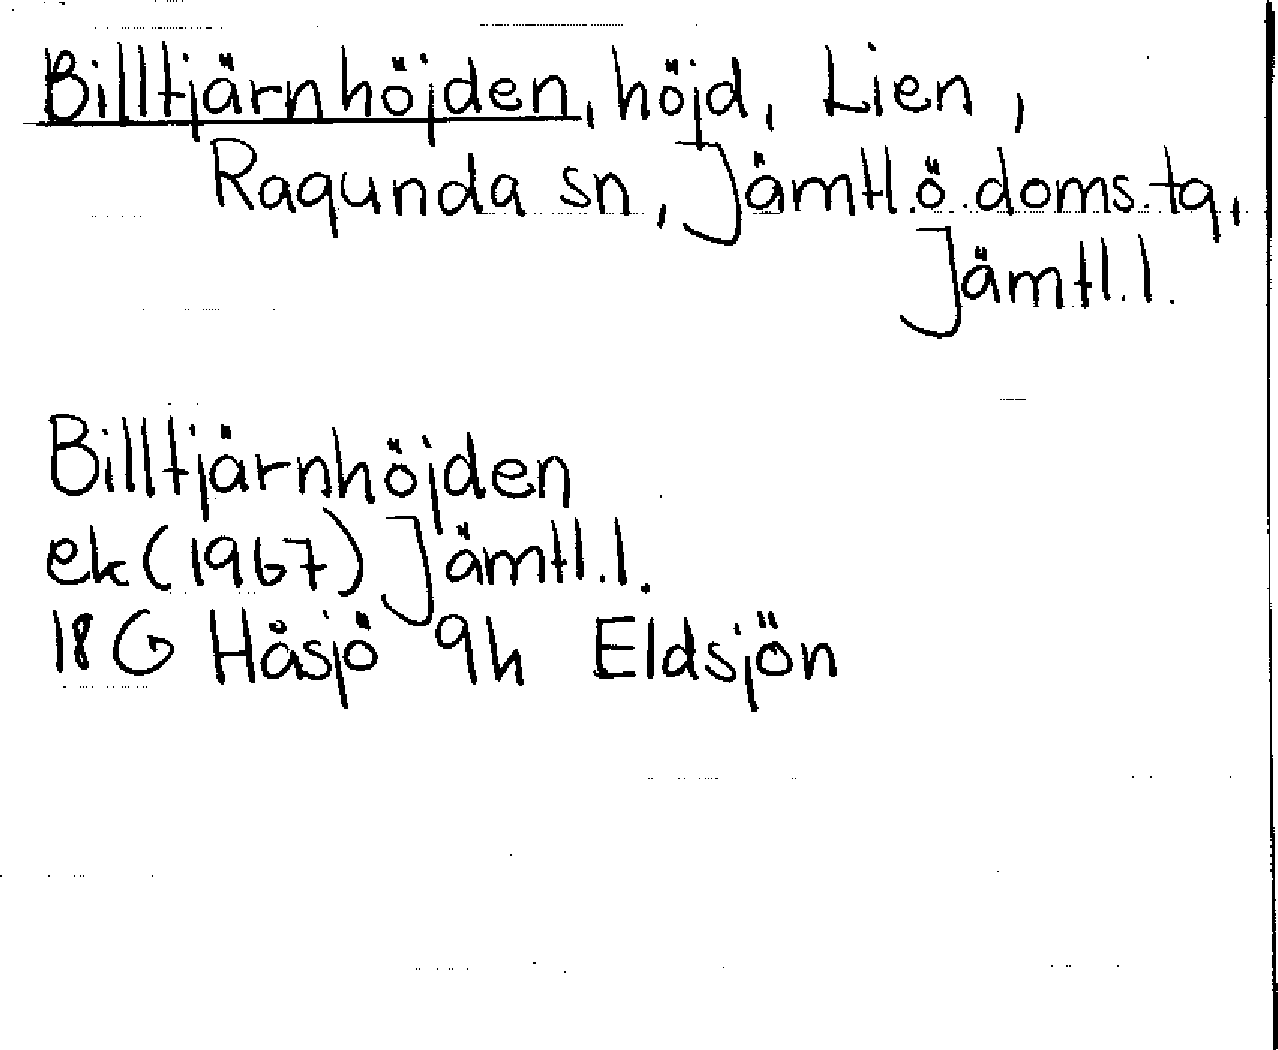 Billtjärnhöjden, höjd, Lien,
Ragunda sn, Jämtl.ö.doms.tg,
Jämtl.l.
Billtjärnhöjden
ek (1967) Jämtl.l.
18 G Håsjö 9h Eldsjön